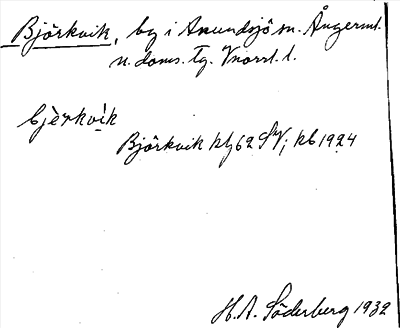 Björkvik, by i Anundsjö sn. Ångerml.
n. doms. Tg. Vnorrl. l.
bjèrkvìk
Björkvik klj 62 SV; kb 1924
H. A. Söderberg 1932